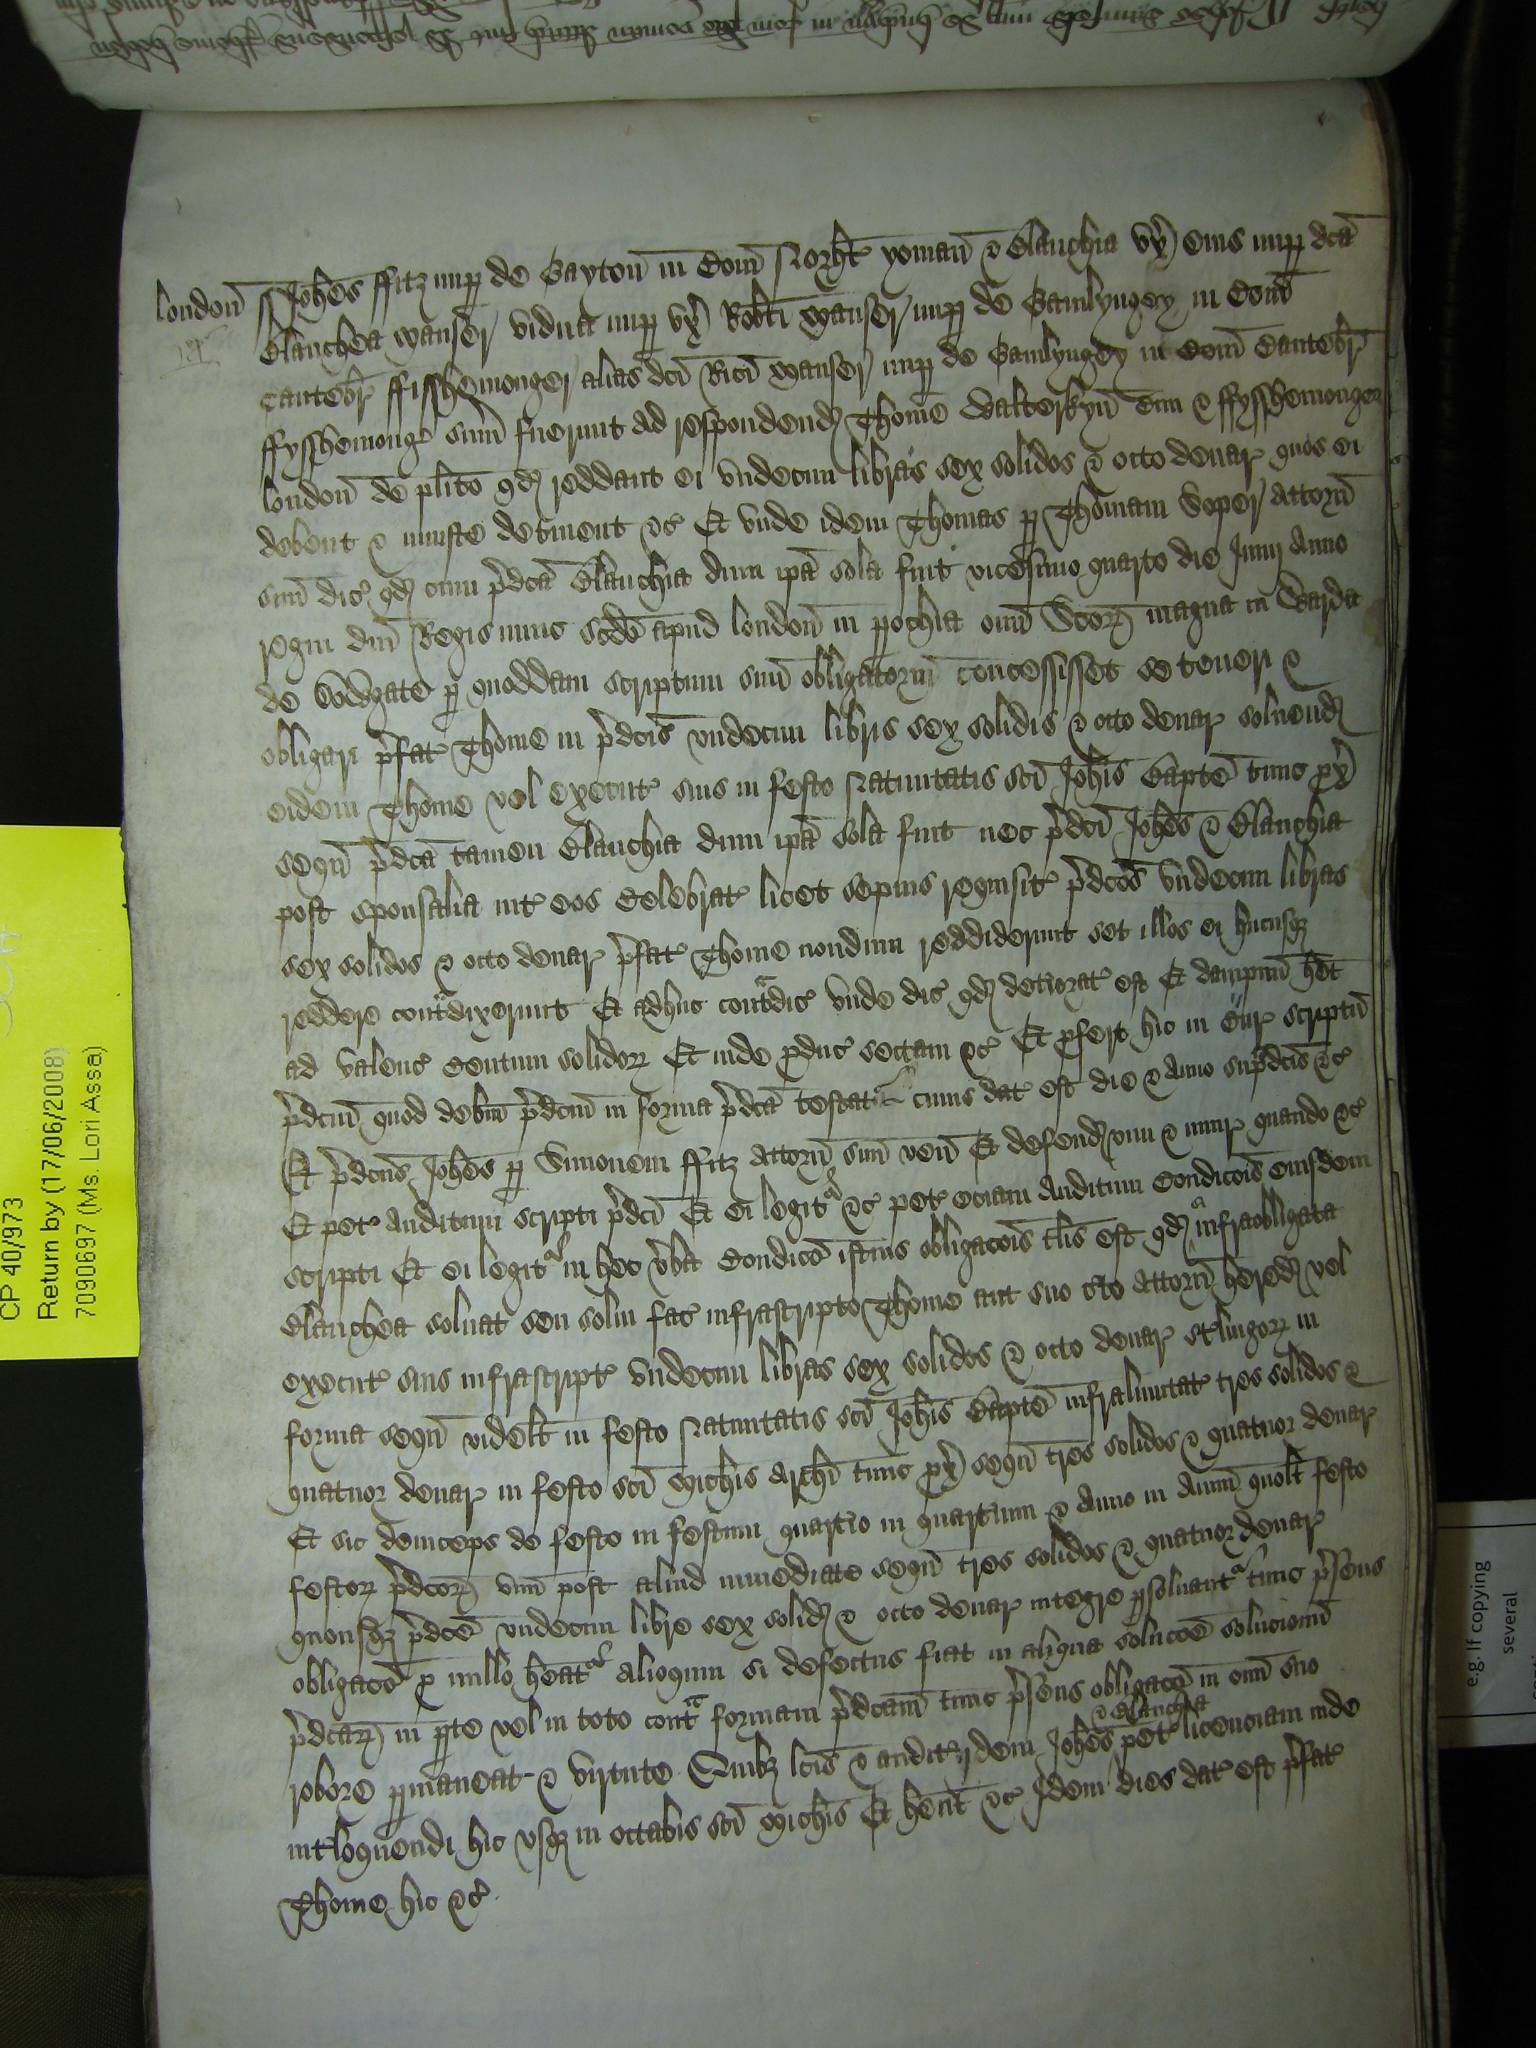 london̄ ss Joh̄es ffitz nup̱ de Gayton̄ in Com̄ Norht̄ yoman̄ & Blanchia vx̄ eius nup̱ dc̄a
Blanchea Manser vidua nup̱ vx̄ Rob̄ti Manser nup̱ de Gamlyngey in Com̄
Cantebr̄ ffisshemonger alias dc̄i Ric̄i Manser nup̱ de Gamlyngey in Com̄ Cantebr̄
ffysshemong̉ sum̄ fuerunt ad respondend̄ Thome Walterkyn̄ Civi & ffysshemonger
london̄ de pl̄ito qd̄ reddant ei vndecim libras sex solidos & octo denar̄ quos ei
debent & iniuste detinent &c̉ Et vnde idem Thomas p̱ Thomam Soper attorn̄
suū dic̉ qd̄ cum p̄dc̄a Blanchia dum ip̄a sola fuit vicesimo quarto die Junij Anno
regni dn̄i Regis nunc sc̄do apud london̄ in p̱ochia om̄i Sc̄or̄ magna in Warda
de p̱ quoddam scriptum suū obligatoriū concessisset se teneri &
obligari p̄fat̉ Thome in p̄dc̄is vndecim libris sex solidis & octo denar̄ soluend̄
eidem Thome vel execut̉ suis in festo Natiuitatis sc̄i Joh̄is Bapt̄e tunc p̄x̄
seqū p̄dc̄a tamen Blanchia dum ip̄a sola fuit nec p̄dc̄i Joh̄es & Blanchia
post sponsalia int̉ eos celebrat̉ licet sepius requisit̉ p̄dc̄os vndecim libras
sex solidos & octo denar̄ p̄fat̉ Thome nondum reddiderunt set illos ei hucusq̨
reddere cont̄dixerunt Et adhuc cont̄dic̉ vnde dic̉ qd̄ deteriorat̉ est Et dampnū h̄et
ad valenc̉ Centum solidor̄ Et inde p̱duc̉ sectam &c̉ Et p̱fert hic in Cur̄ scriptū
p̄dcm̄ quod debm̄ p̄dcm̄ in forma p̄dc̄a testat̉ cuius dat̉ est die & Anno sup̄dc̄is &c̉
Et p̄dcūs Joh̄es p̱ Simonem ffitz Attorn̄ suū ven̄ Et defend̄ vim & iniur̄ quando &c̉
Et pet̉ auditum scripti p̄dc̄i Et ei legit̉ &c̉ pet̉ eciam auditum Condic̄ois eiusdem
scripti Et ei legit̉ in hec v̄ba Condic̄o istius obligac̄ois t̄lis est qd̄ si infraobligata
Blanchea soluat seu solui fac̉ infrascripto Thome aut suo c̉to Attorn̄ hered̄ vel
execut̉ suis infrascript̉ vndecim libras sex solidos & octo denar̄ st̉lingor̄ in
forma seqū videlt̄ in festo Natiuitatis sc̄i Joh̄is Bapt̄e infralimitat̉ tres solidos &
quatuor denar̄ in festo sc̄i Mich̄is Arch̄i tunc p̄x̄ seqū tres solidos & quatuor denar̄
Et sic deinceps de festo in festum quartio in quartum & Anno in Annū quolt̄ festo
festor̄ p̄dc̄or̄ vnū post aliud immediate seqū tres solidos & quatuor denar̄
quousq̨ p̄dc̄e vndecim libre sex solid̄ & octo denar̄ integre p̱soluant̉ tunc p̄sens
obligac̄o p̱ nullo h̄eat̉ Alioquin si defectus fiat in aliqua soluc̄oe soluc̄ionū
p̄dc̄ar̄ in p̱te vel in toto cont̄ formam p̄dc̄am tunc p̄sens obligac̄o in om̄i suo
robore p̱maneat & virtute Quib̨ lc̄is & audit̉ ijdem Joh̄es & Blanchea pet̉ licenciam inde
int̉loquendi hic vsq̨ in octabis sc̄i Mich̄is Et h̄ent &c̉ Idem dies dat̉ est p̄fat̉
Thome hic &c̉
CP 40/973
Return by (17/06/2008)
7090697 (Ms. Lori Assa)
e.g. If copying
several